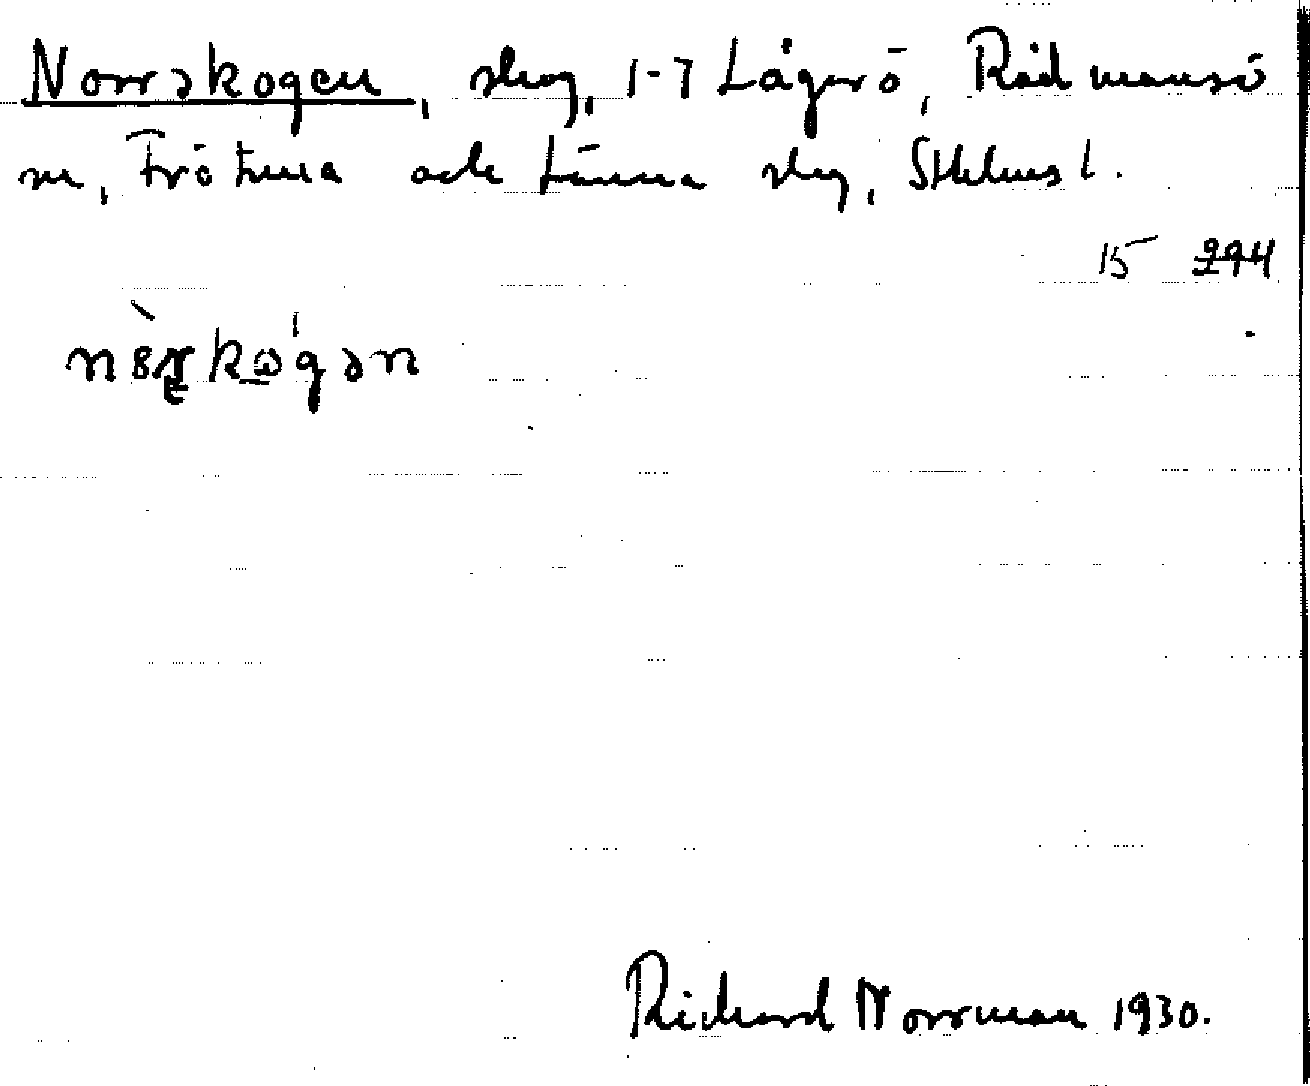 Norrskogen, skog, 1-7 Lågarö, Rådmansö
sn, Frötuna och Länna skg, Sthlms l.
15 294
Richard Norrman 1930.